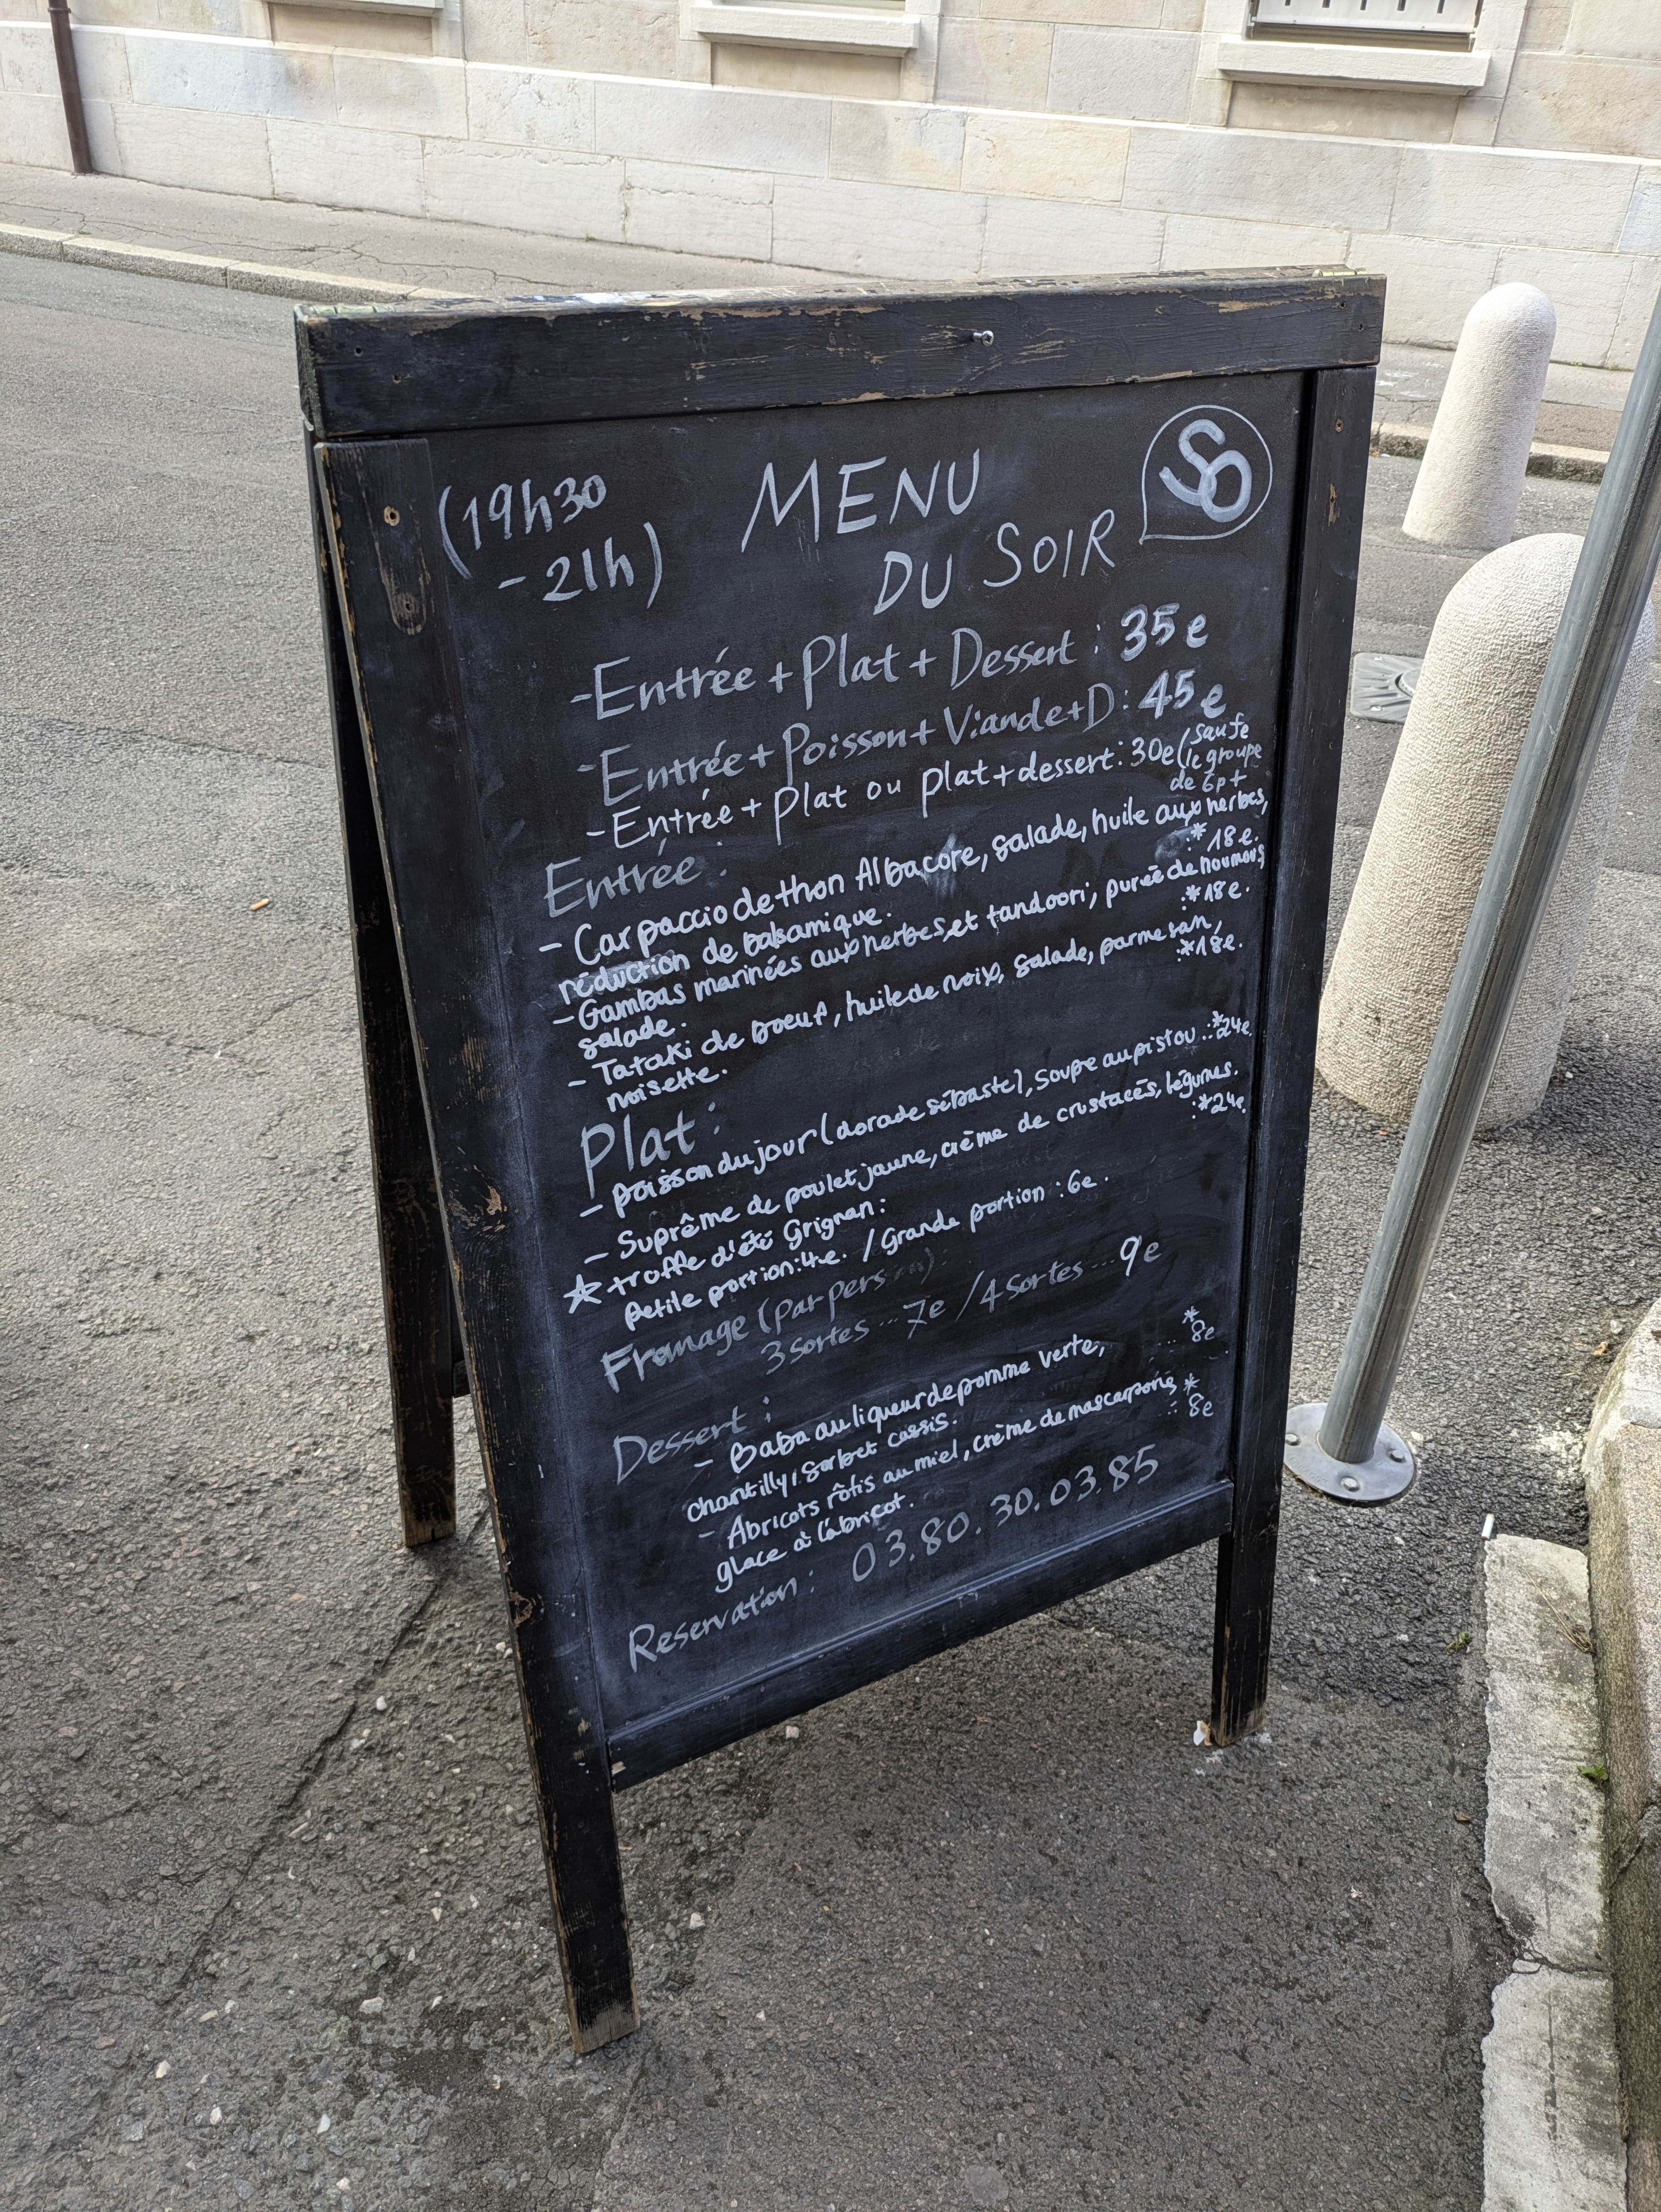 (19h30
- 21h)
MENU
DU SOIR
SO
-Entrée + Plat + Dessert : 35e
-Entrée + Poisson + Viande + D : 45e
-Entrée + plat ou plat + dessert : 30e (saufe
le groupe
de 6p+
Entrée :
- Carpaccio de thon Albacore, salade, huile aux herbes,
réduction de balsamique. :* 18e.
- Gambas marinées aux herbes et tandoori, purée de houmous
salade. :* 18e.
- Tataki de boeuf, huile de noix, salade, parmesan,
noisette. :* 18e.
Plat :
- poisson du jour (dorade sébaste), soupe au pistou ..:* 24e.
- Suprême de poulet jaune, crème de crustacés, légumes.
:* 24e.
☆ truffe d'été Grignan :
petite portion : 4e. / Grande portion : 6e.
Fromage (par person) :
3 sortes ... 7e / 4 sortes ... 9e
Dessert :
- Baba au liqueur de pomme verte, ... * 8e
chantilly, sorbet cassis.
- Abricots rôtis au miel, crème de mascarpone * .: 8e
glace à l'abricot.
Reservation : 03.80.30.03.85